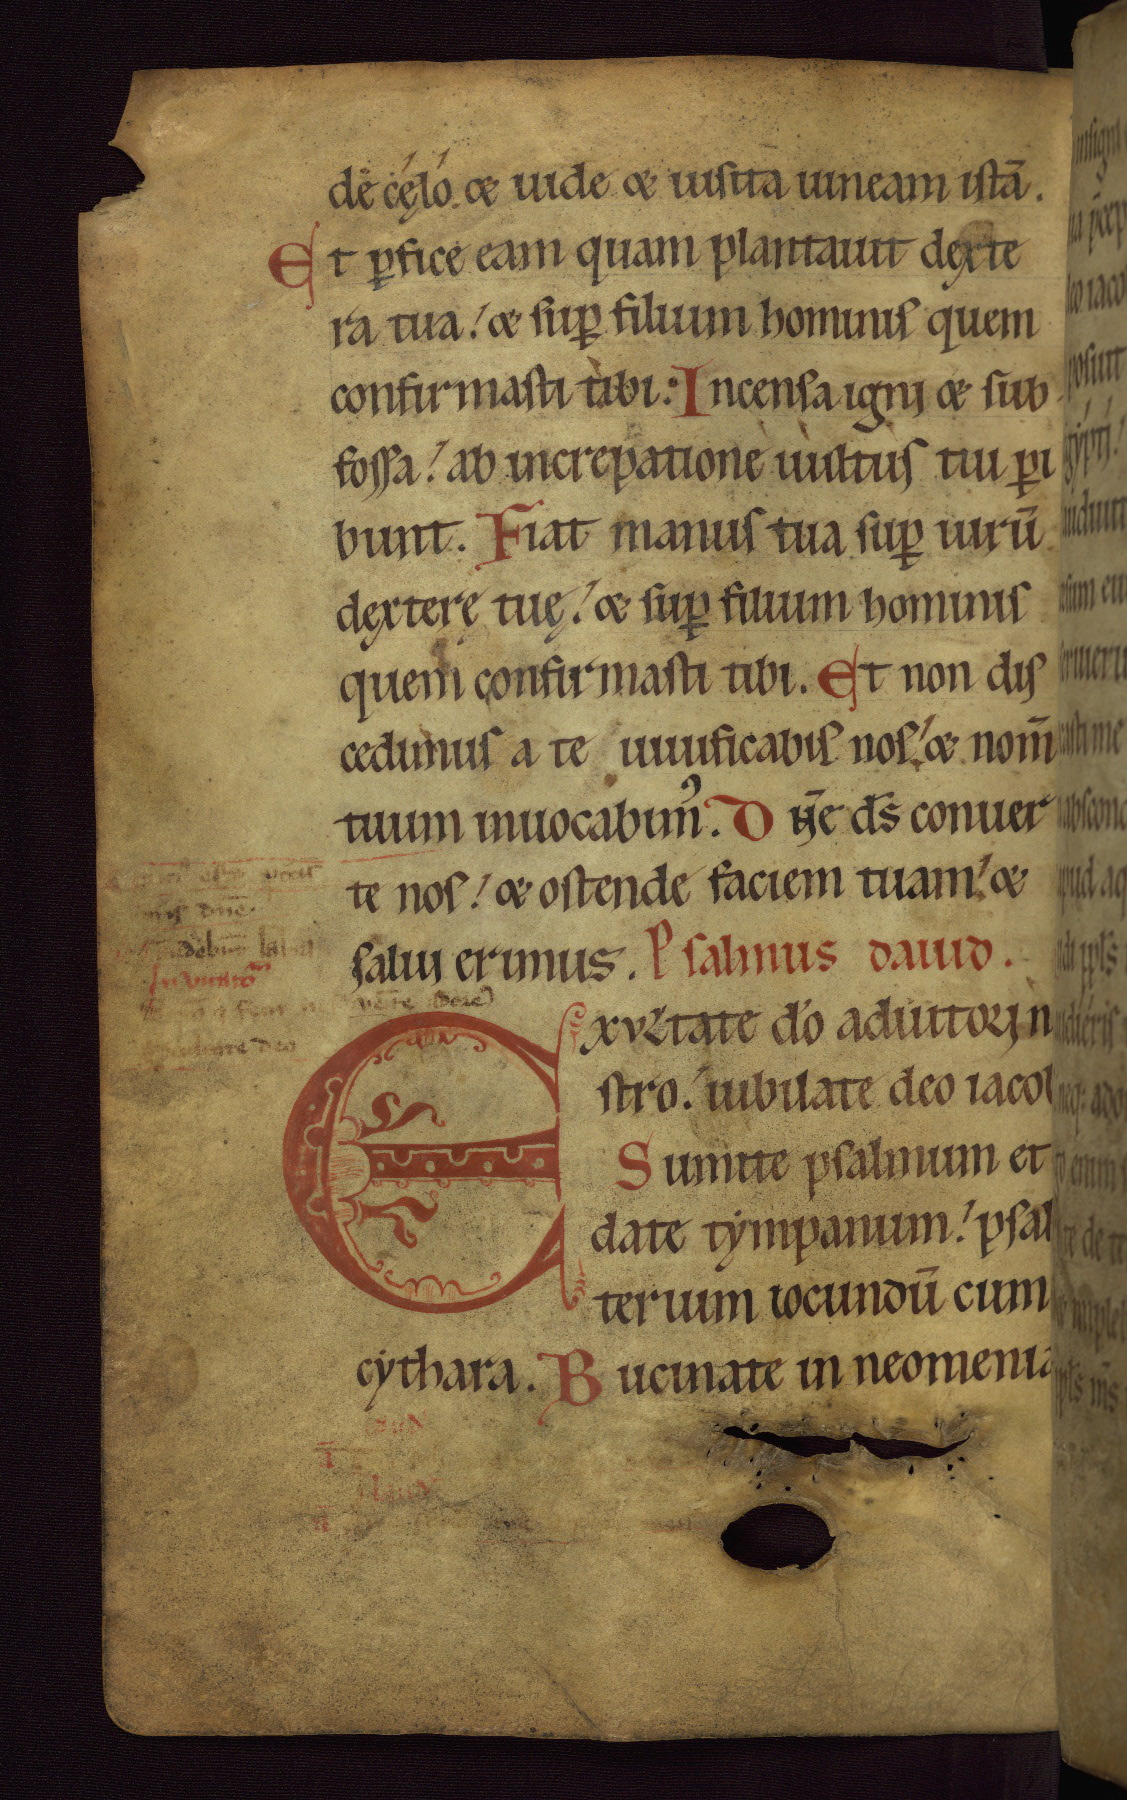 dē cęlo. & uide & uisita uineam istā.
Et ꝑfice eam quam plantauit dexte
ra tua. & suꝑ filium hominis quem
confirmasti tibi. Incensa igni & sub
fossa. ab increpatione uultus tui ꝑi
bunt. Fiat manus tua suꝑ uirū
dexterę tuę. & suꝑ filium hominis
quem confirmasti tibi. Et non dis
cedimus a te uiuificabis nos. & nom̄
tuum inuocabim᷒. Dn̄e ds̄ conuer
te nos. & ostende faciem tuam. &
salui erimus. Psalmus dauid.
Exultate do adiutori n
stro. iubilate deo iacob
Sumite psalmum et
date tympanum. psal
terium iocundū cum
cythara. Bucinate in neomenia